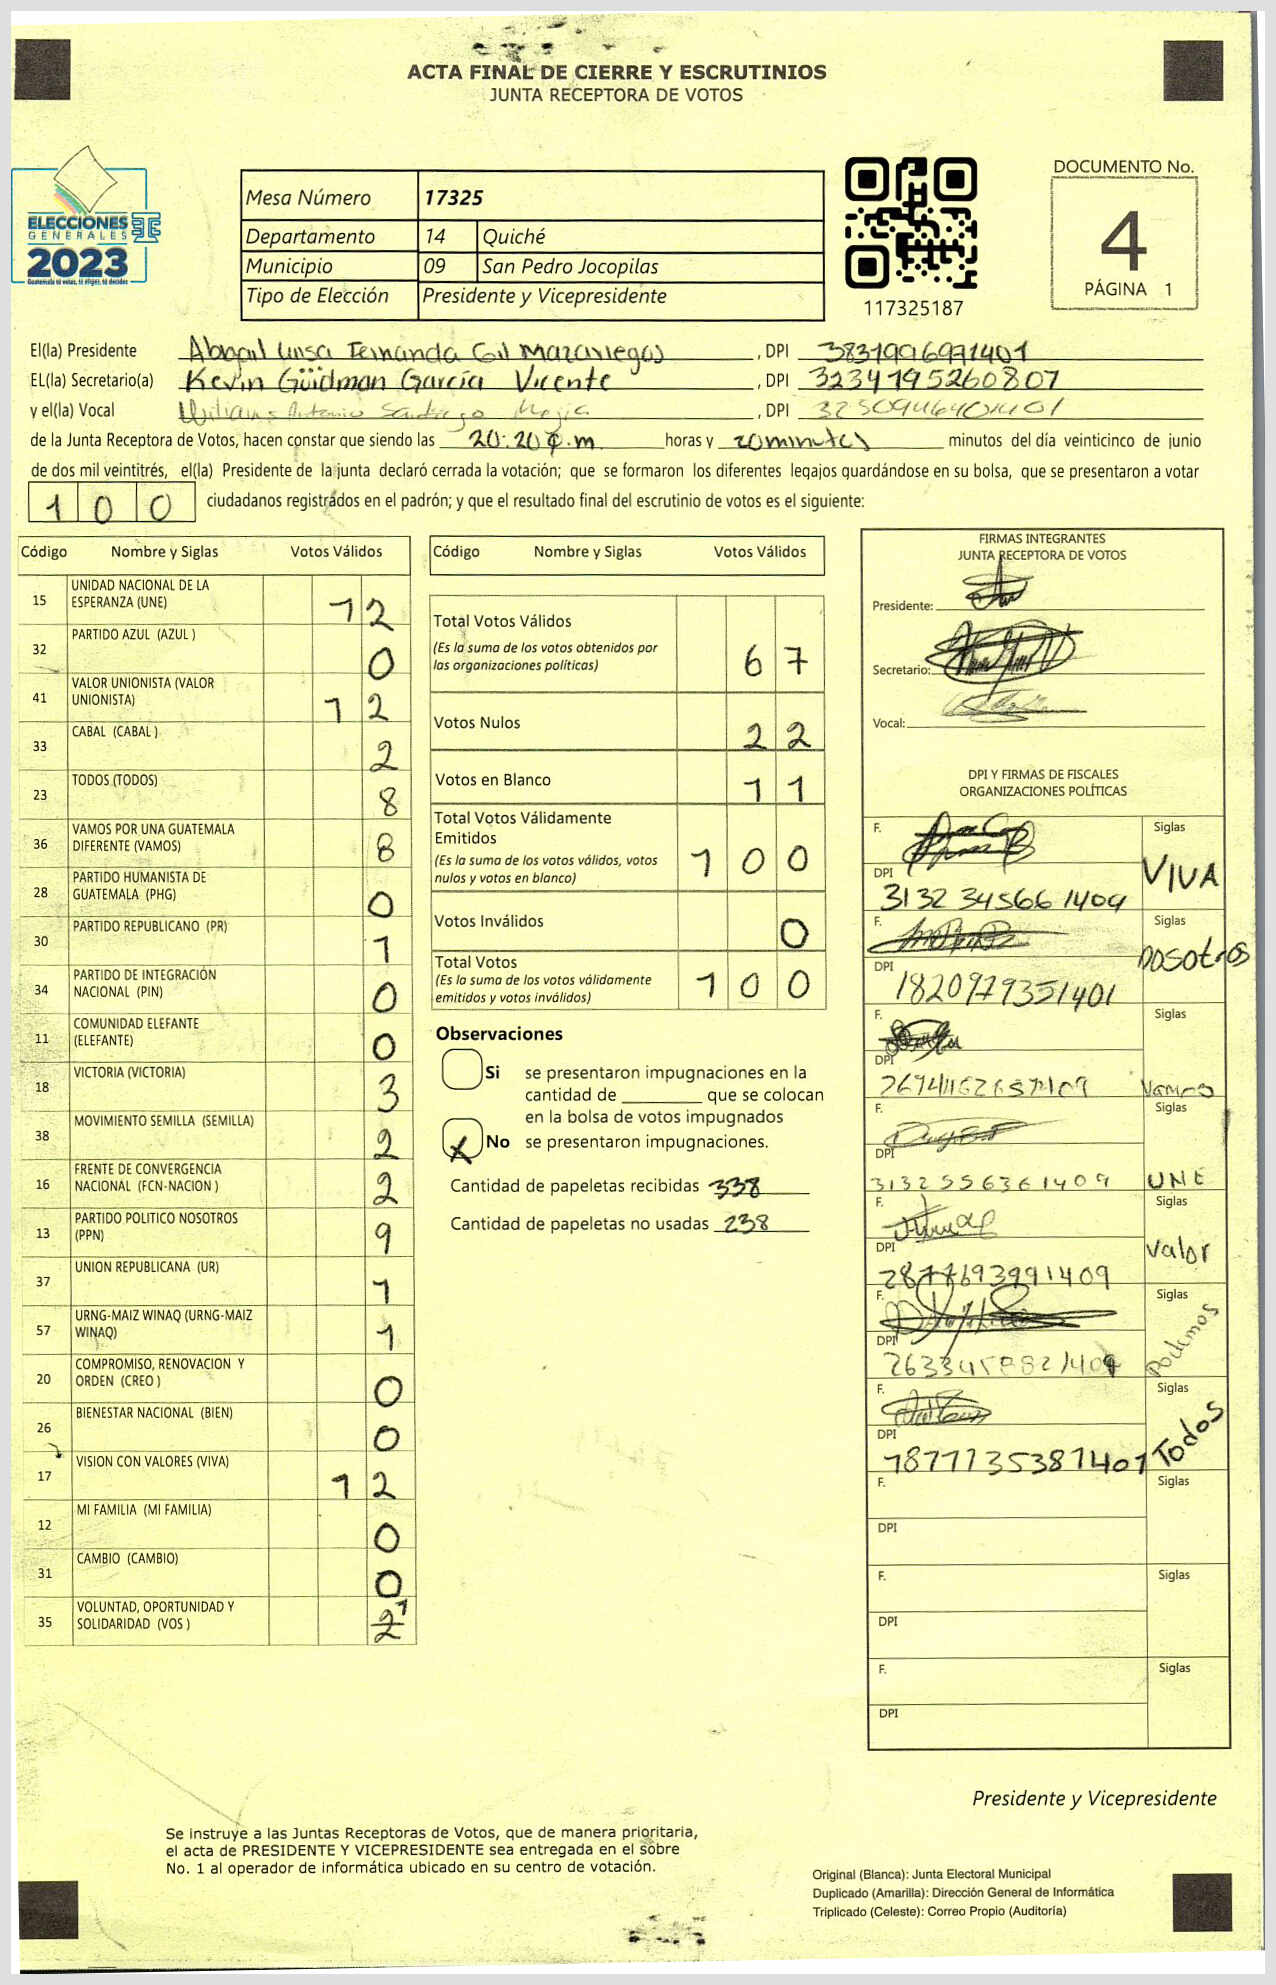 ACTA FINAL DE CIERRE Y ESCRUTINIOS
JUNTA RECEPTORA DE VOTOS
ELECCIONES
GENERALES
2023
Guatemala tú votas, tú eliges, tú decides
Mesa Número 17325
Departamento 14 Quiché
Municipio 09 San Pedro Jocopilas
Tipo de Elección Presidente y Vicepresidente
117325187
DOCUMENTO No.
4
PÁGINA 1
El(la) Presidente Fernanda Gil Mazariegos , DPI
EL(la) Secretario(a) Kevin Güidman García Vicente , DPI 3234195260807
y el(la) Vocal Antonio , DPI
de la Junta Receptora de Votos, hacen constar que siendo las 20:20 p.m horas y 20minutes minutos del día veinticinco de junio
de dos mil veintitrés, el(la) Presidente de la junta declaró cerrada la votación; que se formaron los diferentes legajos guardándose en su bolsa, que se presentaron a votar
100 ciudadanos registrados en el padrón; y que el resultado final del escrutinio de votos es el siguiente:
Código Nombre y Siglas Votos Válidos
15 UNIDAD NACIONAL DE LA ESPERANZA (UNE) 12
32 PARTIDO AZUL (AZUL ) 0
41 VALOR UNIONISTA (VALOR UNIONISTA) 12
33 CABAL (CABAL ) 2
23 TODOS (TODOS) 8
36 VAMOS POR UNA GUATEMALA DIFERENTE (VAMOS) 8
28 PARTIDO HUMANISTA DE GUATEMALA (PHG) 0
30 PARTIDO REPUBLICANO (PR) 1
34 PARTIDO DE INTEGRACIÓN NACIONAL (PIN) 0
11 COMUNIDAD ELEFANTE (ELEFANTE) 0
18 VICTORIA (VICTORIA) 3
38 MOVIMIENTO SEMILLA (SEMILLA) 2
16 FRENTE DE CONVERGENCIA NACIONAL (FCN-NACION ) 2
13 PARTIDO POLITICO NOSOTROS (PPN) 9
37 UNION REPUBLICANA (UR) 1
57 URNG-MAIZ WINAQ (URNG-MAIZ WINAQ) 1
20 COMPROMISO, RENOVACION Y ORDEN (CREO ) 0
26 BIENESTAR NACIONAL (BIEN) 0
17 VISION CON VALORES (VIVA) 12
12 MI FAMILIA (MI FAMILIA) 0
31 CAMBIO (CAMBIO) 0
35 VOLUNTAD, OPORTUNIDAD Y SOLIDARIDAD (VOS ) 2 1
Código Nombre y Siglas Votos Válidos
Total Votos Válidos 67
(Es la suma de los votos obtenidos por
las organizaciones políticas)
Votos Nulos 22
Votos en Blanco 11
Total Votos Válidamente
Emitidos 100
(Es la suma de los votos válidos, votos
nulos y votos en blanco)
Votos Inválidos 0
Total Votos 100
(Es la suma de los votos válidamente
emitidos y votos inválidos)
Observaciones
Si se presentaron impugnaciones en la
cantidad de ________ que se colocan
en la bolsa de votos impugnados
X No se presentaron impugnaciones.
Cantidad de papeletas recibidas 338
Cantidad de papeletas no usadas 238
FIRMAS INTEGRANTES
JUNTA RECEPTORA DE VOTOS
Presidente:
Secretario:
Vocal:
DPI Y FIRMAS DE FISCALES
ORGANIZACIONES POLÍTICAS
F. Siglas
DPI VIVA
3132 34566 1409
F. Siglas
DPI nosotros
1820979351401
F. Siglas
DPI
Vamos
F. Siglas
DPI
3132556361409 UNE
F. Siglas
DPI Valor
2877693991409
F. Siglas
DPI Podemos
F. Siglas
DPI Todos
1877735387401
F. Siglas
DPI
F. Siglas
DPI
F. Siglas
DPI
Presidente y Vicepresidente
Se instruye a las Juntas Receptoras de Votos, que de manera prioritaria,
el acta de PRESIDENTE Y VICEPRESIDENTE sea entregada en el sobre
No. 1 al operador de informática ubicado en su centro de votación.
Original (Blanca): Junta Electoral Municipal
Duplicado (Amarilla): Dirección General de Informática
Triplicado (Celeste): Correo Propio (Auditoría)